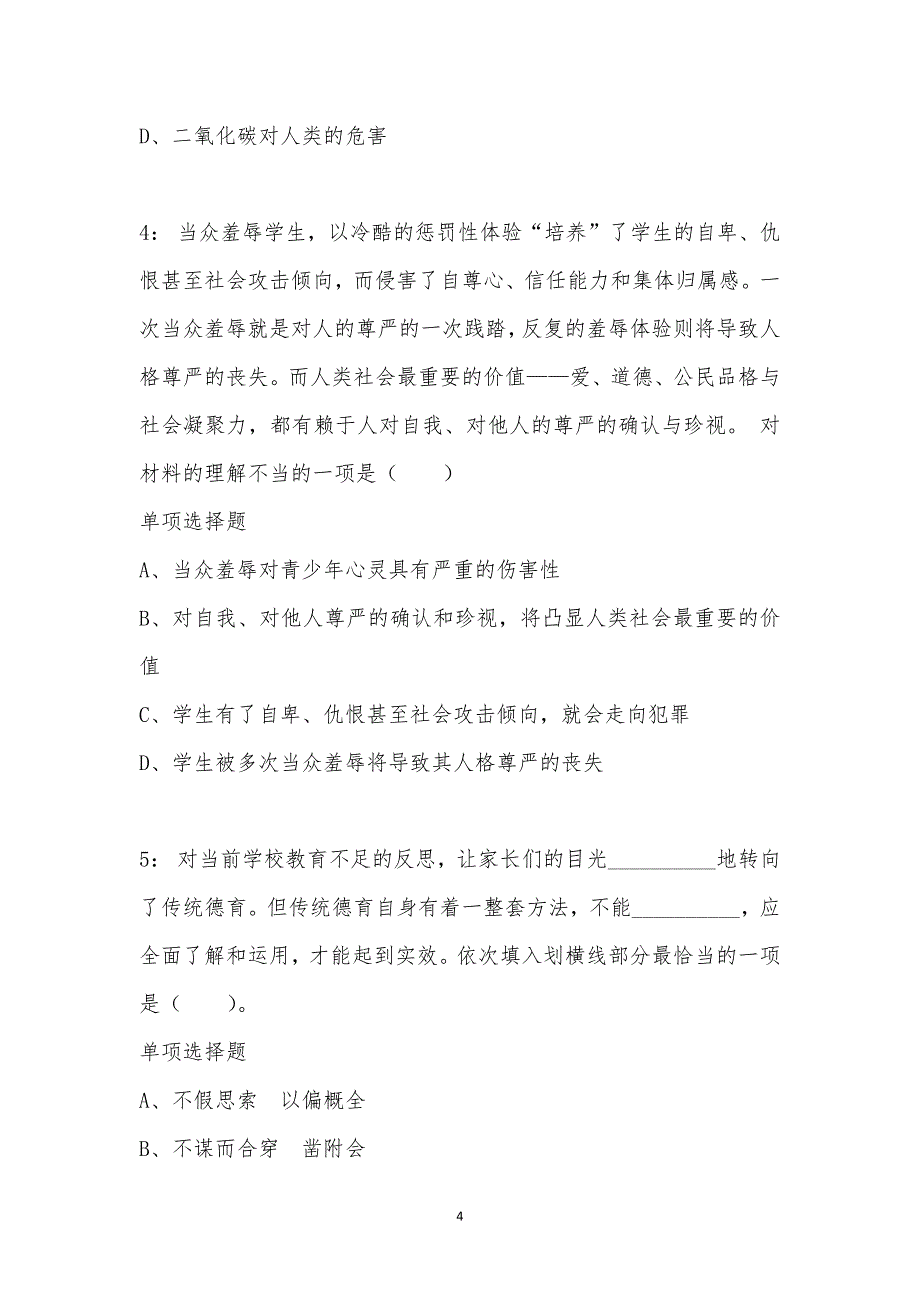 D、二氧化碳对人类的危害
4： 当众羞辱学生，以冷酷的惩罚性体验“培养”了学生的自卑、仇
恨甚至社会攻击倾向，而侵害了自尊心、信任能力和集体归属感。一
次当众羞辱就是对人的尊严的一次践踏，反复的羞辱体验则将导致人
格尊严的丧失。而人类社会最重要的价值——爱、道德、公民品格与
社会凝聚力，都有赖于人对自我、对他人的尊严的确认与珍视。 对
材料的理解不当的一项是（　　）
单项选择题
A、当众羞辱对青少年心灵具有严重的伤害性
B、对自我、对他人尊严的确认和珍视，将凸显人类社会最重要的价
值
C、学生有了自卑、仇恨甚至社会攻击倾向，就会走向犯罪
D、学生被多次当众羞辱将导致其人格尊严的丧失
5： 对当前学校教育不足的反思，让家长们的目光__________地转向
了传统德育。但传统德育自身有着一整套方法，不能__________，应
全面了解和运用，才能起到实效。依次填入划横线部分最恰当的一项
是（　　）。
单项选择题
A、不假思索　以偏概全
B、不谋而合穿　凿附会
4